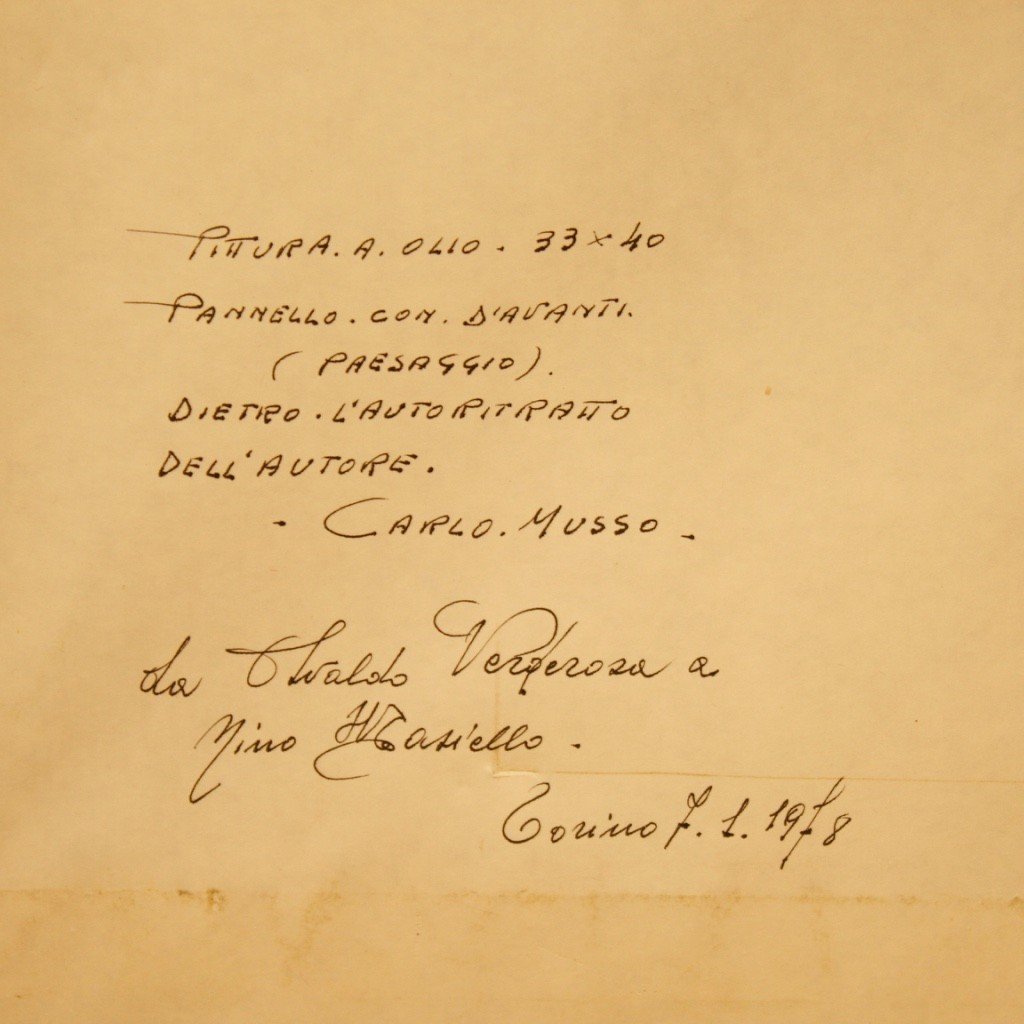 PITTURA. A. OLIO. 33×40
PANNELLO. CON. D'AVANTI.
(PAESAGGIO).
DIETRO. L'AUTORITRATTO
DELL'AUTORE.
- CARLO. MUSSO -
da Osvaldo Verderosa a
Nino Masiello.
Torino 7. 1. 1978